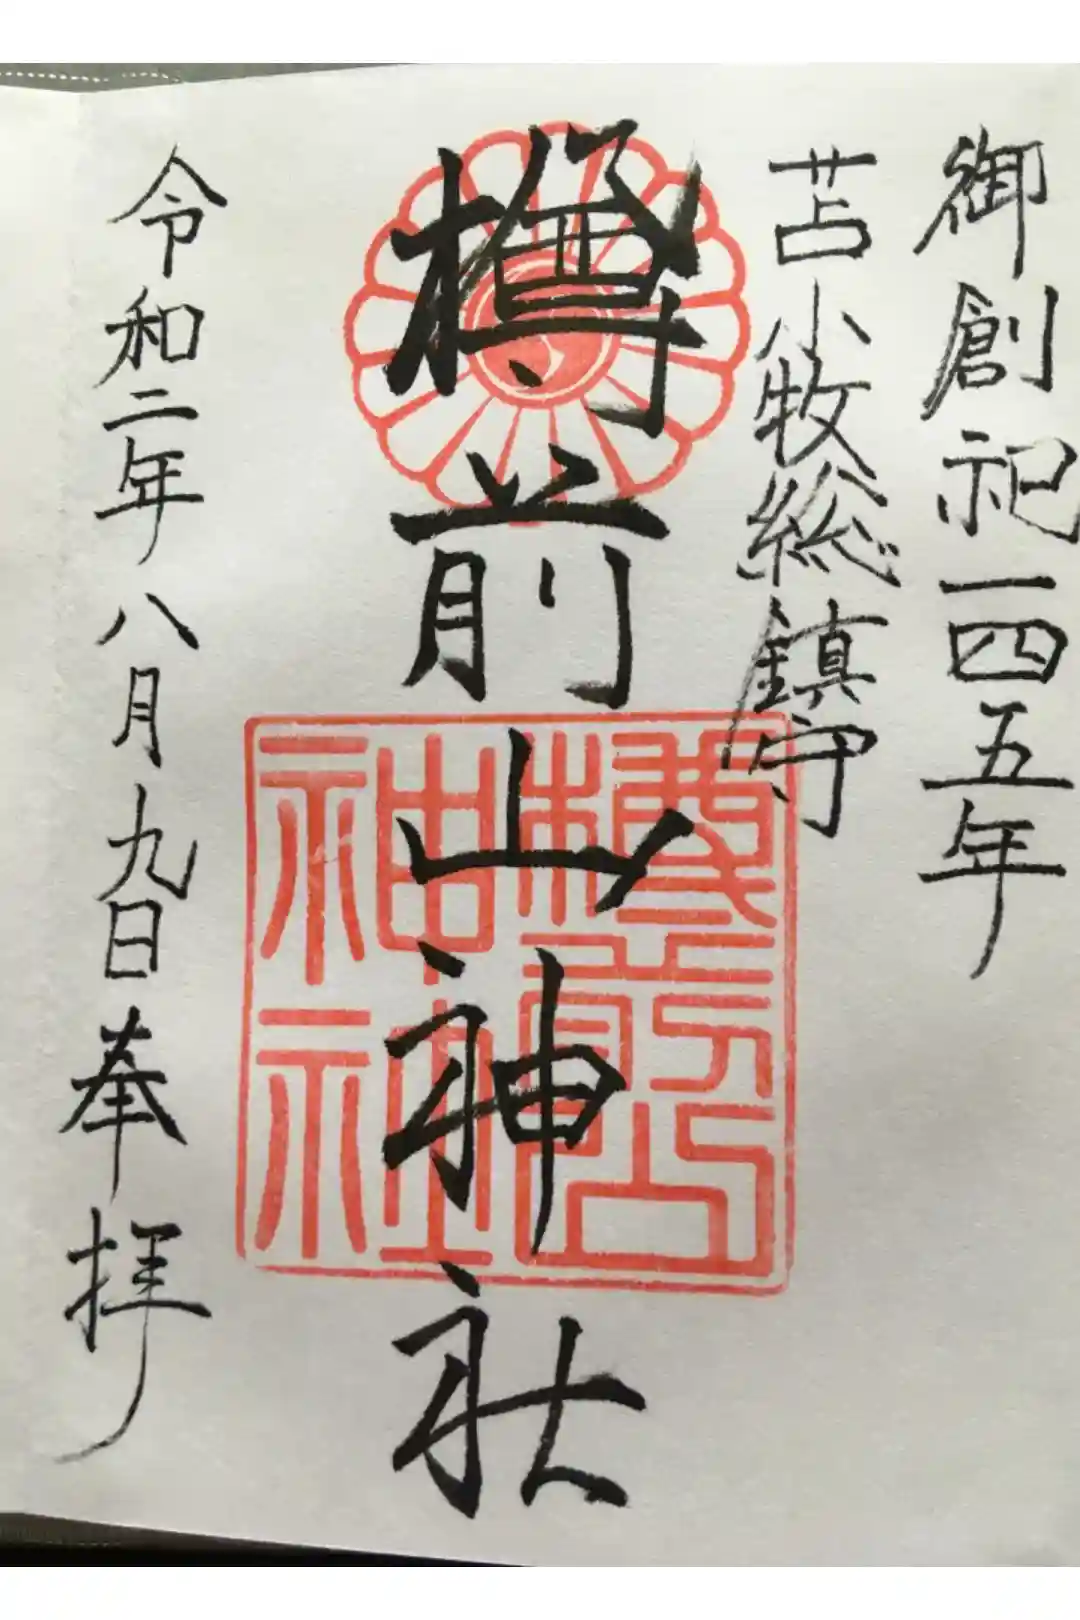 御創祀一四五年
苫小牧総鎮守
樽前山神社
樽前山神社
令和二年八月九日奉拝